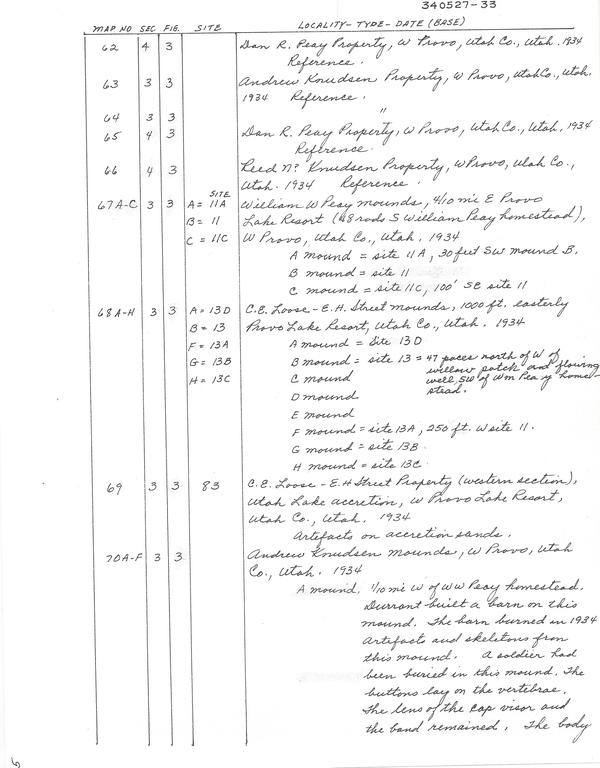 340527-33
MAP NO SEC FIG. SITE LOCALITY-TYPE-DATE (BASE)
62 4 3 Dan R. Peay Property, W Provo, Utah Co., Utah. 1934
Reference.
63 3 3 Andrew Knudsen Property, W Provo, Utah Co., Utah.
1934 Reference.
64 3 3 "
65 4 3 Dan R. Peay Property, W Provo, Utah Co., Utah, 1934
Reference.
66 4 3 Reed N? Knudsen Property, W Provo, Utah Co.,
Utah. 1934 Reference.
SITE
67A-C 3 3 A = 11A William W Peay mounds, 4/10 mi E Provo
B = 11 Lake Resort (48 rods S William Peay homestead),
C = 11C W Provo, Utah Co., Utah. 1934
A mound = site 11A, 30 feet SW mound B.
B mound = site 11
C mound = site 11C, 100' SE site 11
68A-H 3 3 A = 13D C.E. Loose - E.H. Street mounds, 1000 ft. easterly
B = 13 Provo Lake Resort, Utah Co., Utah. 1934
F = 13A A mound = Site 13D
G = 13B B mound = site 13 = 47 paces north of W of
willow patch and flowing
H = 13C C mound well, SW of Wm Peay home-
stead.
D mound
E mound
F mound = site 13A, 250 ft. W site 11.
G mound = site 13B.
H mound = site 13C
69 3 3 83 C.E. Loose - E.H Street Property (western section),
Utah Lake accretion, W Provo Lake Resort,
Utah Co., Utah. 1934
Artefacts on accretion sands.
70A-F 3 3 Andrew Knudsen mounds, W Provo, Utah
Co., Utah. 1934
A mound. 1/10 mi W of WW Peay homestead.
Durrant built a barn on this
mound. The barn burned in 1934
Artefacts and skeletons from
this mound. A soldier had
been buried in this mound. The
buttons lay on the vertebrae.
The lens of the cap visor and
the band remained. The body
6